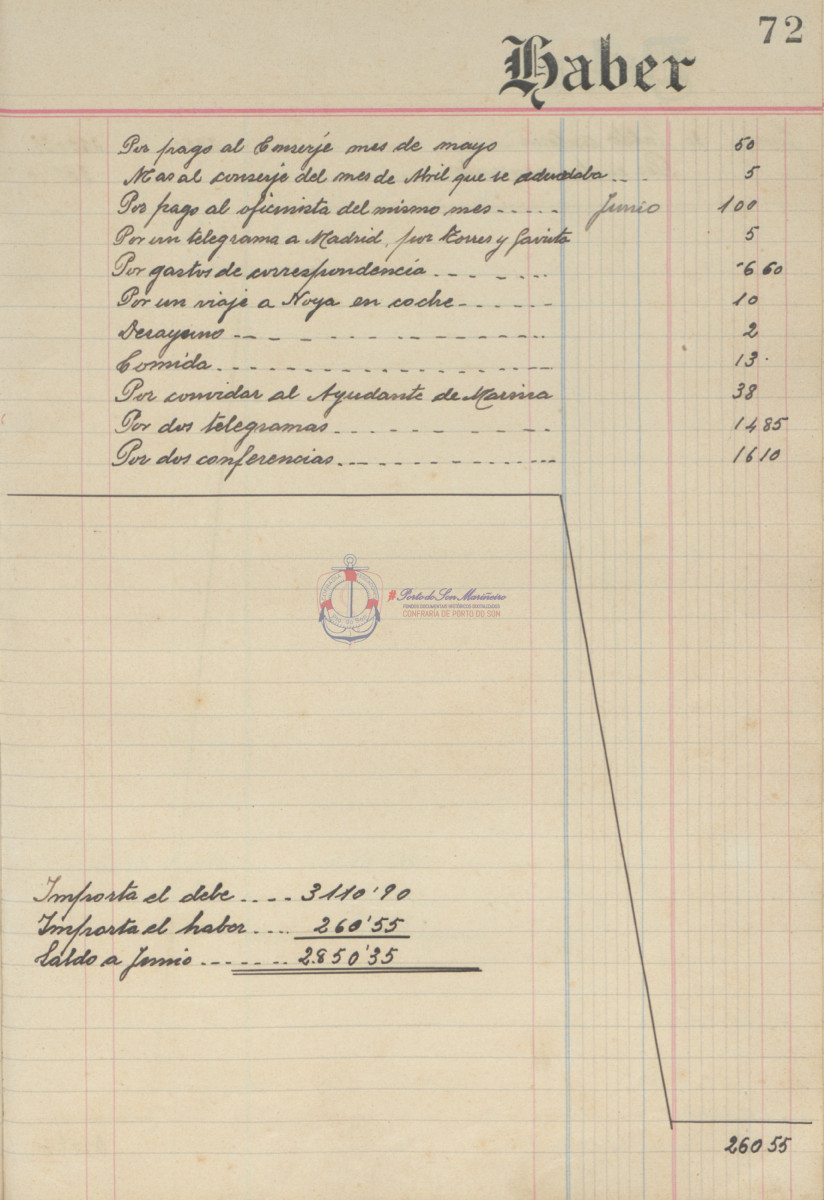 72
Haber
Por pago al Conserje mes de mayo 50
Mas al conserje del mes de Abril que se adeudaba .. . 5
Por pago al oficinista del mismo mes - - - - - Junio 100
Por un telegrama a Madrid, por Torres y 5
Por gastos de correspondencia - - - - - - 6 60
Por un viaje a Noya en coche - - - - - - 10
Desayuno - - - - - - - - - - - - - - 2
Comida - - - - - - - - - - - - - - - 13
Por convidar al Ayudante de Marina 38
Por dos telegramas - - - - - - - - - 14 85
Por dos conferencias - - - - - - - - - 16 10
COFRADIA PESCADORES
#Porto do Son Mariñeiro
FONDOS DOCUMENTAIS HISTÓRICOS DIXITALIZADOS
CONFRARIA DE PORTO DO SON
Importa el debe .... 3110'90
Importa el haber .... 260'55
Saldo a Junio ....... 2.850'35
260 55